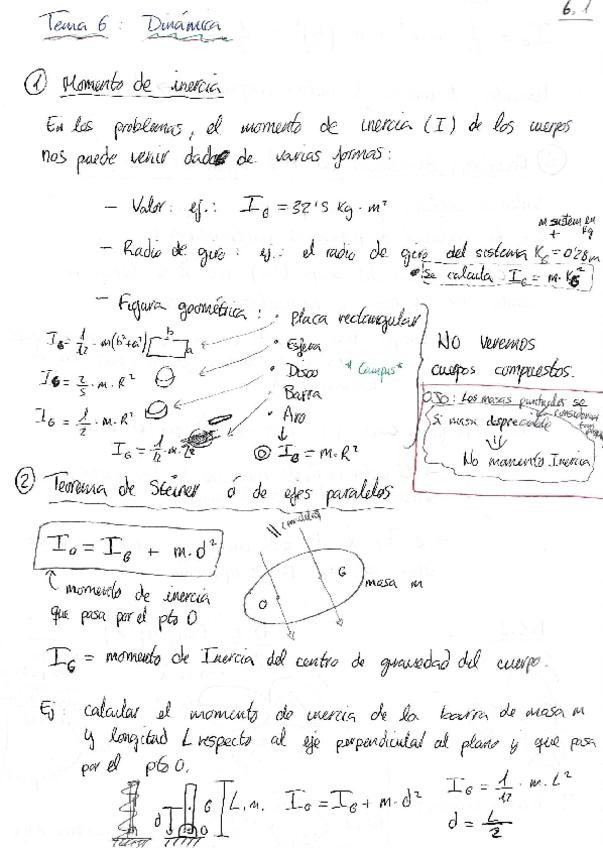 6.1
Tema 6: Dinámica
① Momento de inercia
En los problemas, el momento de inercia (I) de los cuerpos
nos puede venir dado de varias formas:
– Valor: ej.: I_G = 32'5 kg·m²
m sistem en kg
+
– Radio de giro: ej.: el radio de giro del sistema K_G = 0'28 m
• Se calcula I_G = m·K_G²
– Figura geométrica: • Placa rectangular
I_G = 1/12 · m(b²+a²) b a
• Esfera
I_G = 2/5 · m·R²
• Disco *Campus*
I_G = 1/2 · m·R²
Barra
I_G = 1/12 · m·
• Aro
↓
I_G = m·R²
No veremos
cuerpos compuestos.
OJO: Las masas puntuales se
consideran
Si masa despreciable
⇓
No momento Inercia
② Teorema de Steiner ó de ejes paralelos
I_O = I_G + m·d²
momento de inercia
que pasa por el pto O
O G masa m
I_G = momento de Inercia del centro de gravedad del cuerpo.
Ej: calcular el momento de inercia de la barra de masa m
y longitud L respecto al eje perpendicular al plano y que pasa
por el pto O.
d G O L, m. I_O = I_G + m·d²
I_G = 1/12 · m·L²
d = L/2